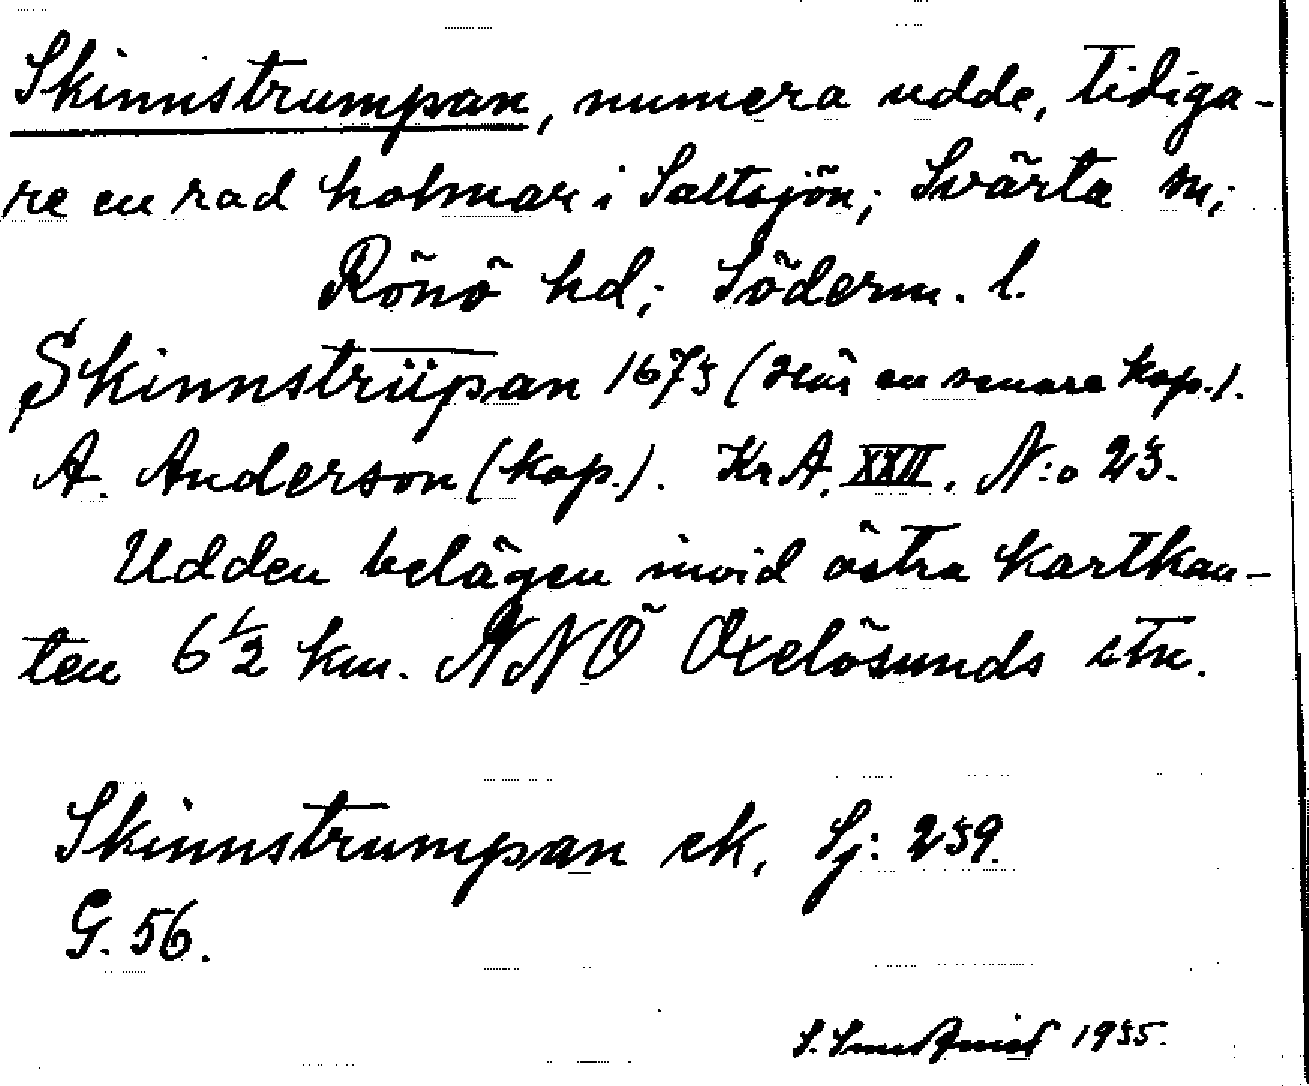 Skinnstrumpan, numera udde, tidiga-
re en rad holmar i Saltsjön; Svärta sn;
Rönö hd; Söderm. l.
Skinnstrüpan 1673 (här en senare kop.).
A. Anderson (kop.). Kr. A. XXII. N:o 23.
Udden belägen invid östra kartkan-
ten 6 1/2 km. NNÖ Oxelösunds stn.
Skinnstrumpan ek, Sj: 239.
G. 56.
S. 1935.